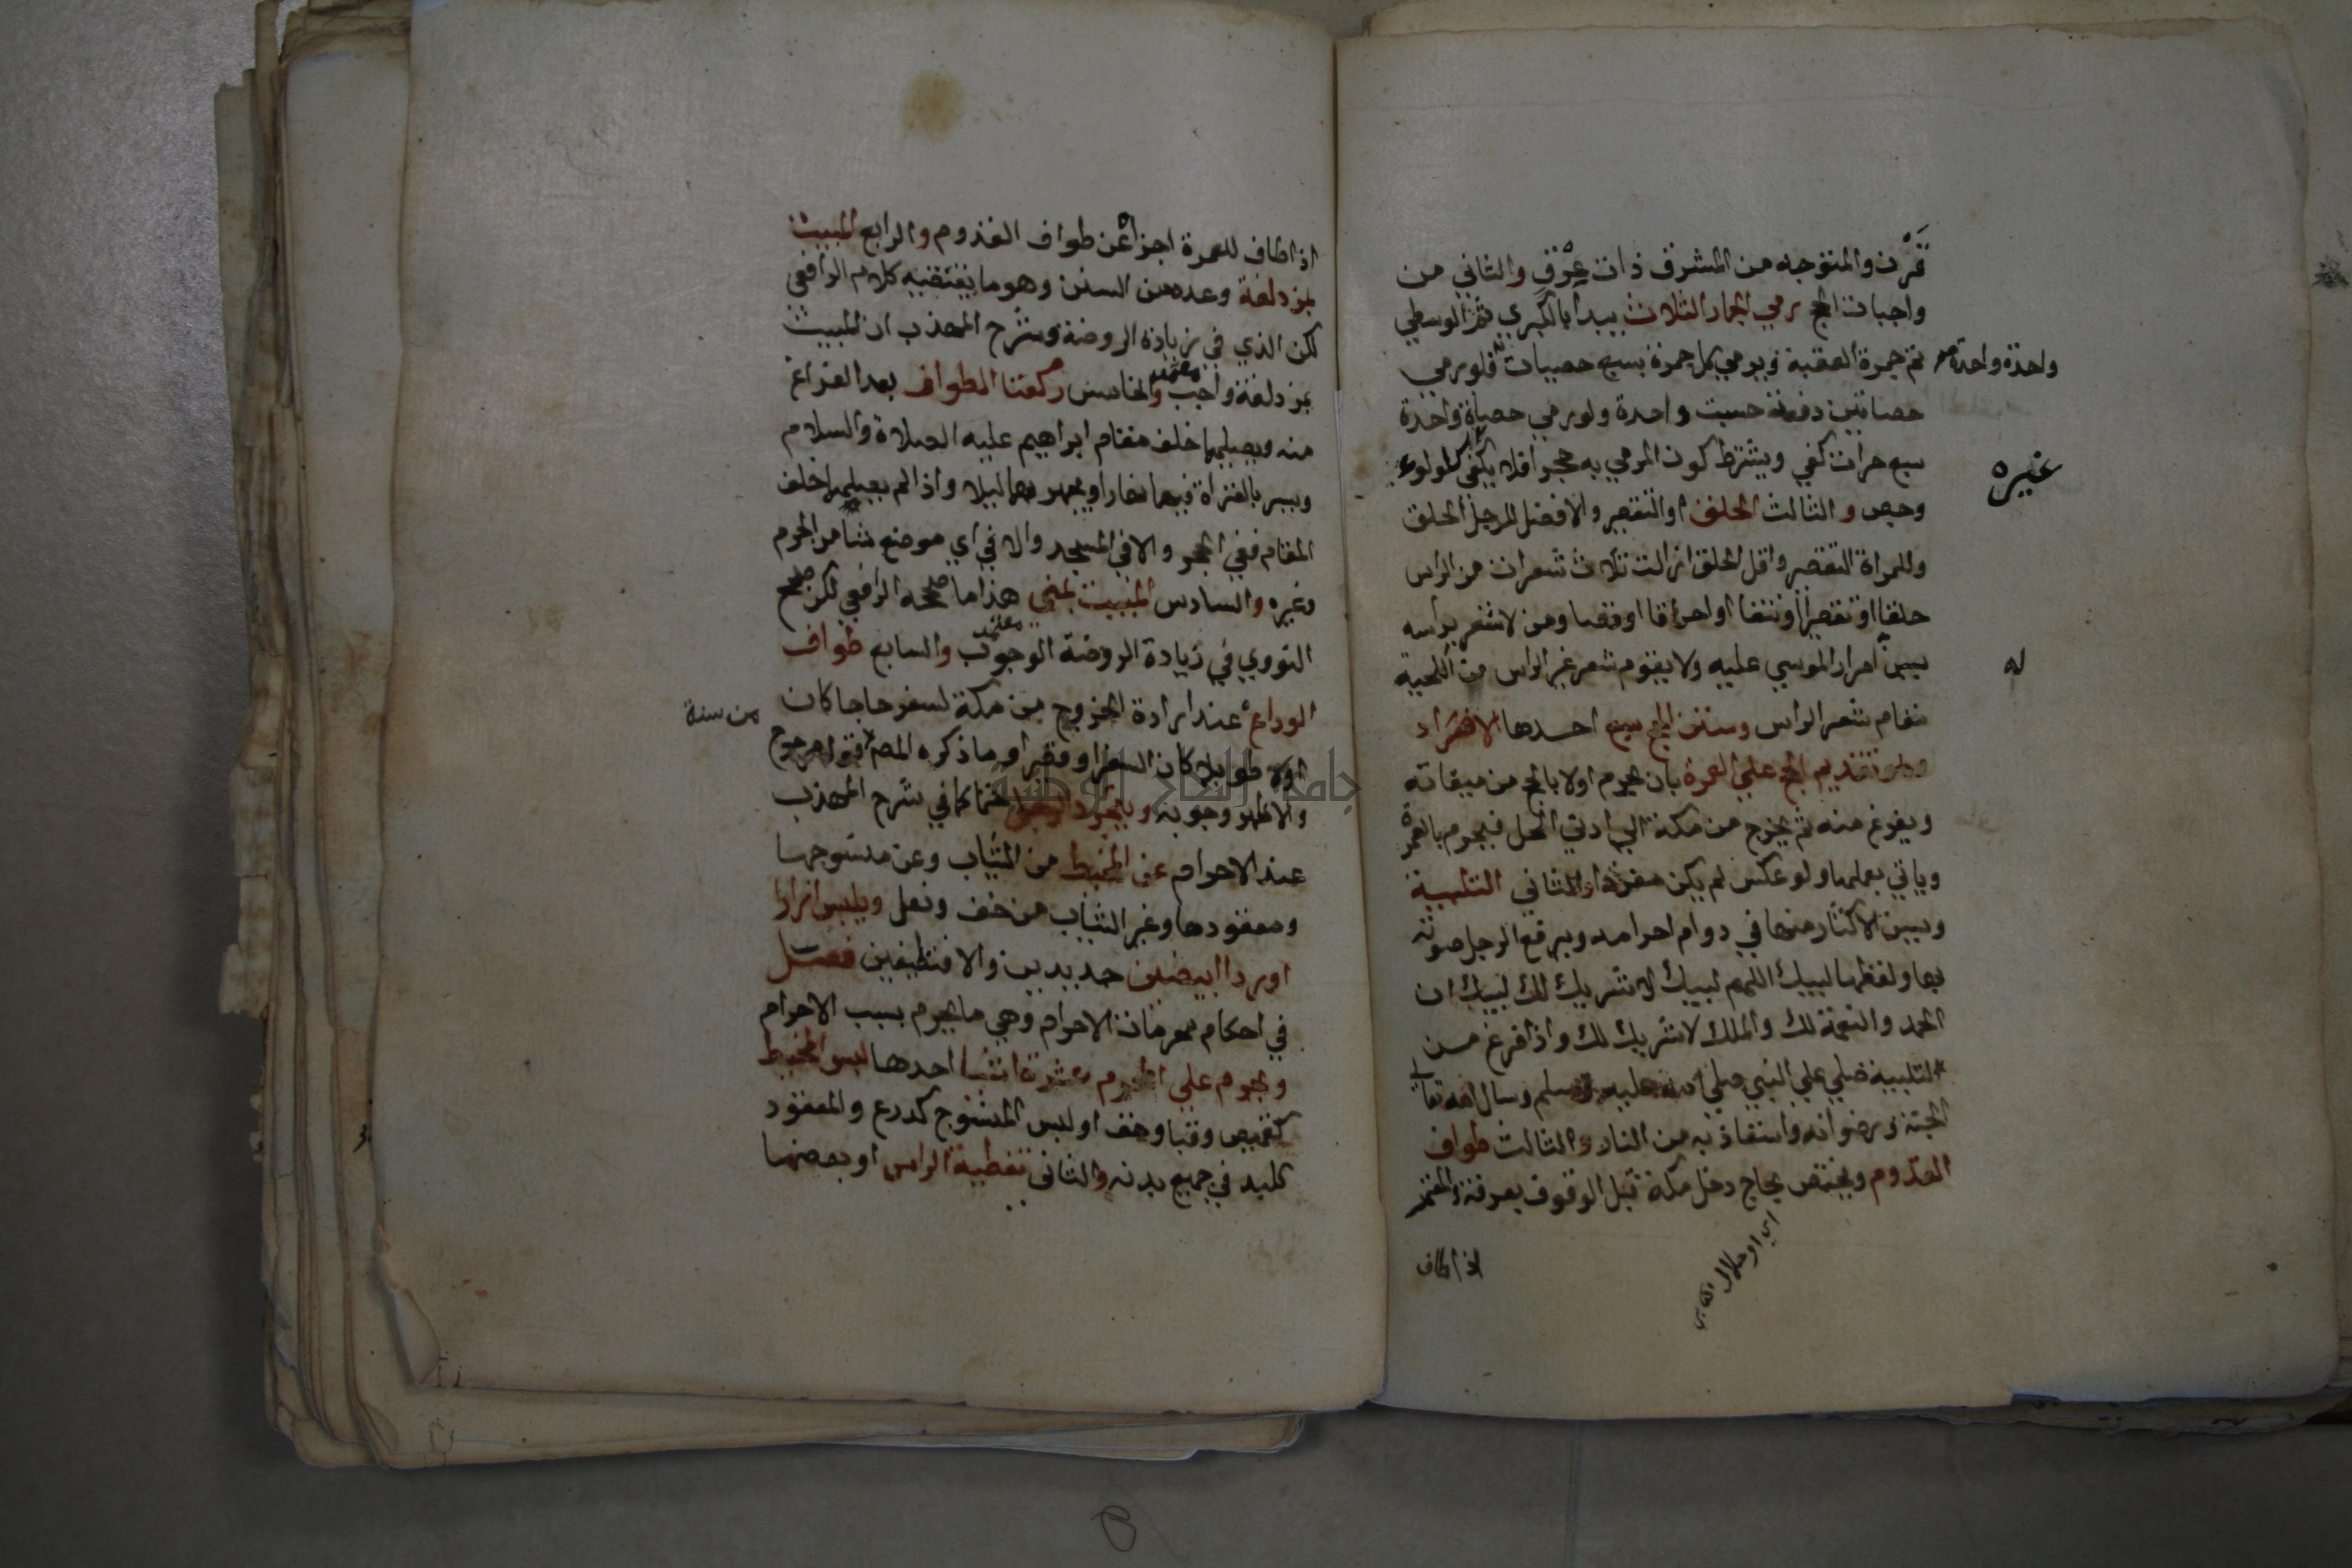 قَرْن والمتوجه من المشرق ذات عِرْق والثاني من
واجبات الحج رمي الجمار الثلاث يبدا بالكبري ثم الوسطي
ثم جمرة العقبة ويرمي كل جمرة بسبع حصيات فلو رمي
واحدة واحدة
حصاتين دفعة حسبت واحدة ولو رمي حصاة واحدة
سبع مرات كفي ويشترط كون المرمي به حجرا فلا يكفي كلولوء
غيره
وجص والثالث الحلق او التقصير والافضل للرجل الحلق
وللمراة التقصير واقل الحلق ازالت ثلاث شعرات من الراس
حلقا او تقصيرا او نتفا او احراقا او قصا ومن لا شعر براسه
يسن امرار الموسي عليه ولا يقوم شعر غير الراس من اللحية
له
مقام شعر الراس وسنن الحج سبع احدها الافراد
وهو تقديم الحج علي العمرة بان يحرم اولا بالحج من ميقاته
ويفرغ منه ثم يخرج من مكة الي ادني الحل فيحرم بالعمرة
وياتي بعملها ولو عكس لم يكن مفردا والثاني التلبية
ويسن الاكثار منها في دوام احرامه ويرفع الرجل صوته
بها ولفظها لبيك اللهم لبيك لا شريك لك لبيك ان
الحمد والنعمة لك والملك لا شريك لك واذا فرغ من
التلبية صلي علي النبي صلي الله عليه وسلم وسال الله تعالي
الجنة ورضوانه واستعاذ به من النار والثالث طواف
القدوم ويختص بحاج دخل مكة قبل الوقوف بعرفة والمعتمر
اذا طاف
اذا طاف للعمرة اجزا عن طواف القدوم والرابع المبيت
بمزدلفة وعده من السنن وهو ما يقتضيه كلام الرافعي
لكن الذي في زيادة الروضة وشرح المهذب ان المبيت
بمزدلفة واجب والخامس ركعتا الطواف بعد الفراغ
معتمد
منه ويصليهما خلف مقام ابراهيم عليه الصلاة والسلام
ويسر بالقراة فيهما نهارا ويجهر بهما ليلا واذا لم يصليهما خلف
المقام ففي الحجر والا في المسجد والا في اي موضع شا من الحرم
وغيره والسادس المبيت بمني هذا ما صححه الرافعي لكن صحح
النووي في زيادة الروضة الوجوب والسابع طواف
معتمد
الوداع عند ارادة الخروج من مكة لسفر حاجا كان
من سنة
اولا طويلا كان السفر او قصيرا وما ذكره المصـ قول مرجوح
والاظهر وجوبه ويتجرد الرجل حتما كما في شرح المهذب
عند الاحرام عن المخيط من الثياب وعن منسوجها
ومعقودها وغير الثياب من خف ونعل ويلبس ازارا
وردا ابيضين جديدين والا فنظيفين فصل
في احكام محرمات الاحرام وهي ما يحرم بسبب الاحرام
ويحرم علي المحرم عشرة اشيا احدها لبس المخيط
كقميص وقبا وخف او لبس المنسوج كدرع والمعقود
كلبد في جميع بدنه والثاني تغطية الراس او بعضها
جامعة النجاح الوطنية